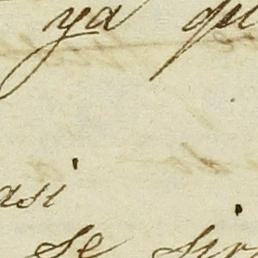 ya qu
asi
se sir